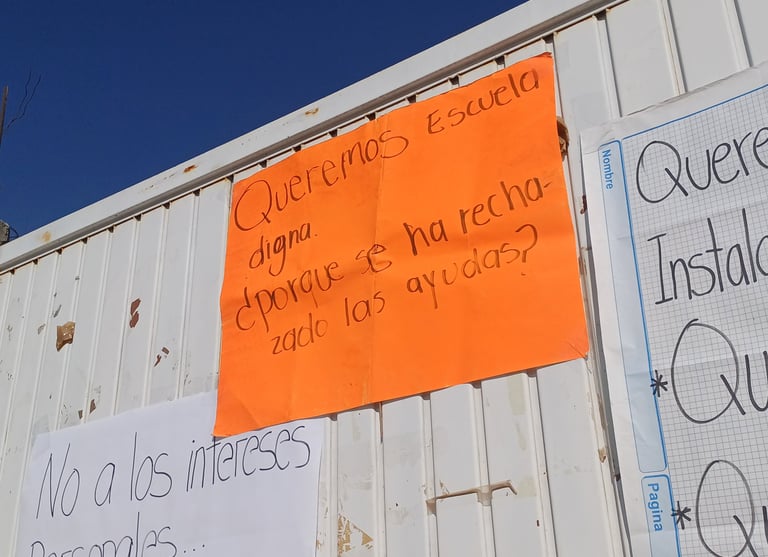 Queremos Escuela
digna.
¿porque se ha recha-
zado las ayudas?
No a los intereses
Personales...
Nombre
Quere
Instala
*Qu
*Qu
Pagina